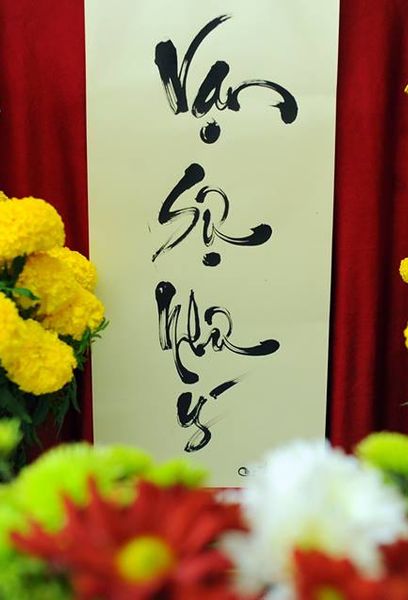 Vạn
Sự
Như
Ý